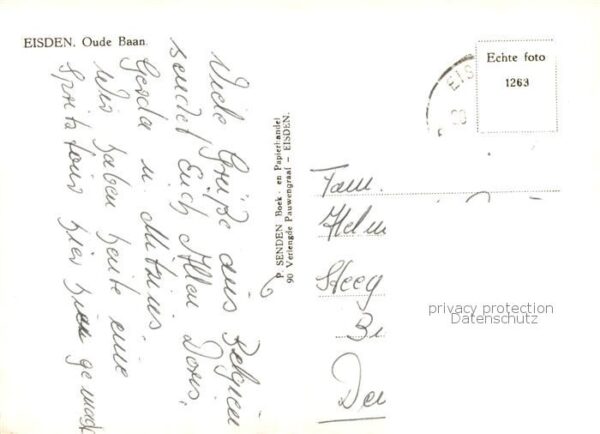 EISDEN. Oude Baan.
Viele Grüße aus Belgien
sendet Euch Allen Doris,
Gerda u.
Wir haben heute eine
Spritztour hier gemacht
P. SENDEN Boek- en Papierhandel
90 Verlengde Pauwengraaf – EISDEN.
Echte foto
1263
EIS
Fam.
Helm
Steeg
privacy protection
Datenschutz